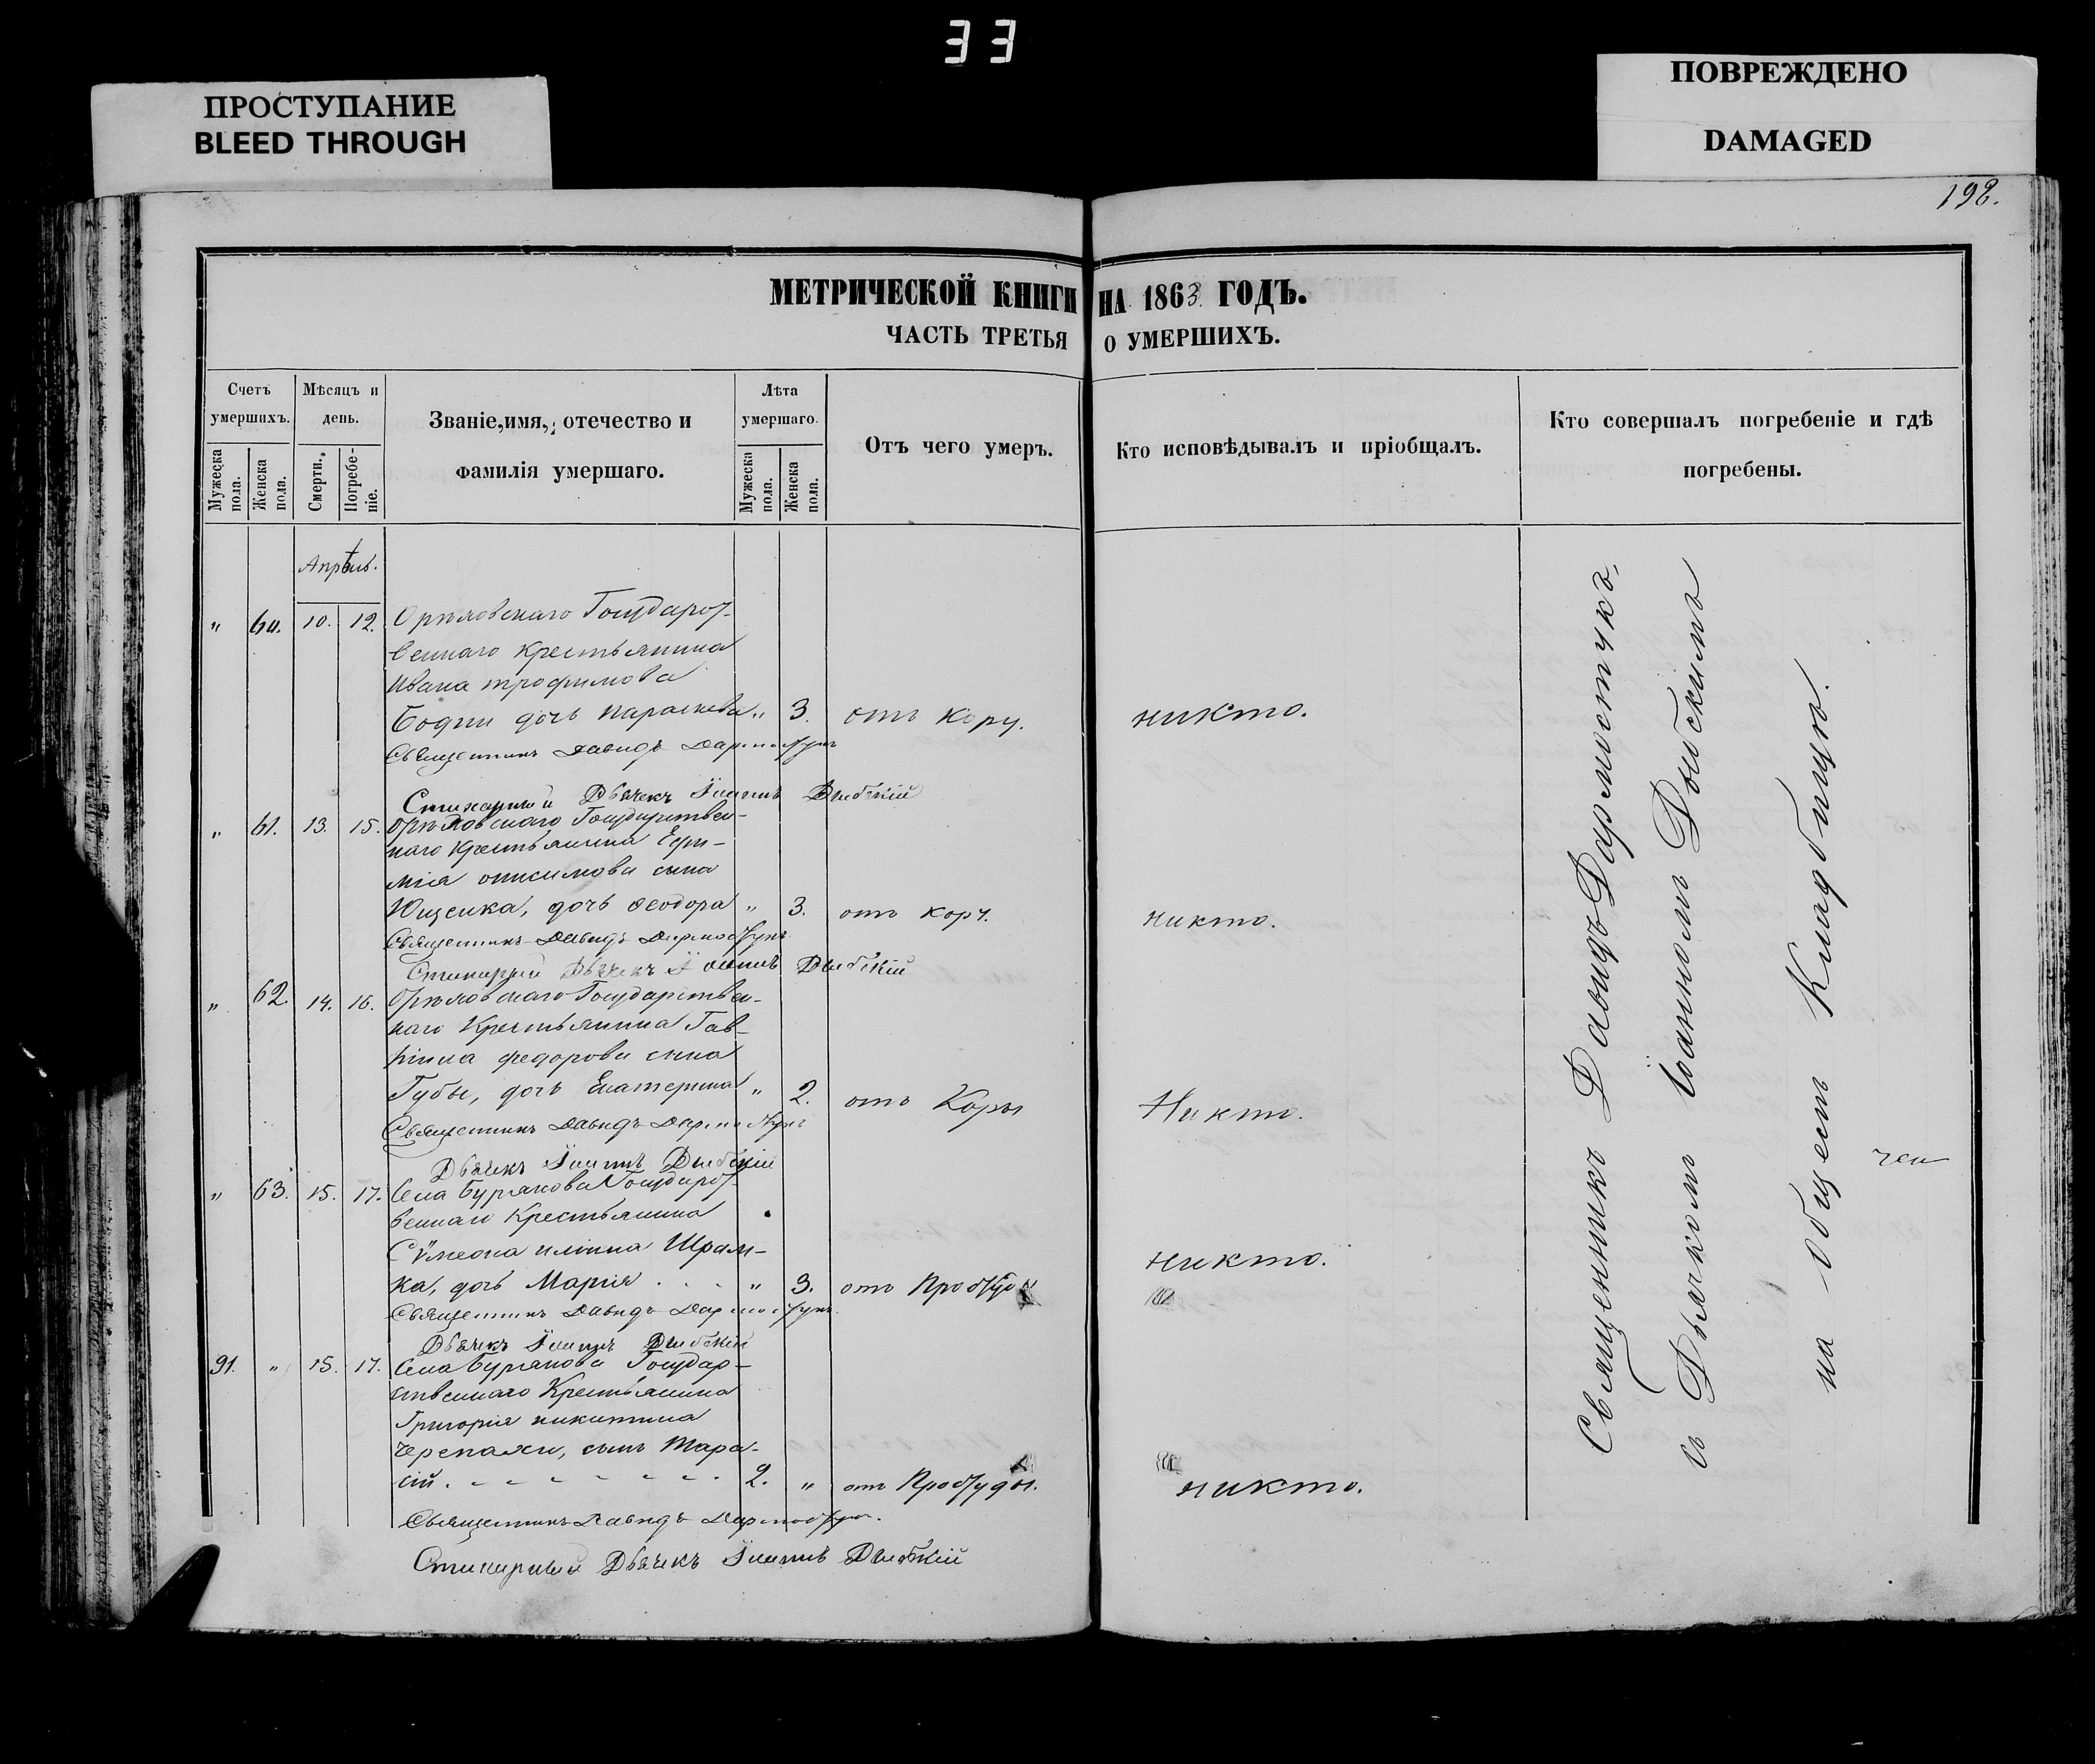 33
ПРОСТУПАНИЕ
BLEED THROUGH
ПОВРЕЖДЕНО
DAMAGED
198.
МЕТРИЧЕСКОЙ КНИГИ НА 1863 ГОДЪ.
ЧАСТЬ ТРЕТЬЯ О УМЕРШИХЪ.
Счетъ умершихъ.
Мужеска пола.
Женска пола.
Мѣсяцъ и день.
Смерти.
Погребеніе.
Званіе, имя, отечество и фамилія умершаго.
Лѣта умершаго.
Мужеска пола.
Женска пола.
Отъ чего умеръ.
Кто исповѣдывалъ и пріобщалъ.
Кто совершалъ погребеніе и гдѣ погребены.
Апрѣль.
" 60. 10. 12. Орѣховскаго Государст-
веннаго Крестьянина
Ивана трофимова
дочь параскева " 3. отъ кору. никто.
Священникъ Давидъ Дармостукъ
Стихарный Дьячекъ Іоаннъ
" 61. 13. 15. Орѣховскаго Государствен-
наго Крестьянина Ефи-
мія онисимова сына
Ющенка, дочь Феодора " 3. отъ кору. никто.
Священникъ Давидъ Дармостукъ
Стихарный Дьячекъ Іоаннъ
" 62. 14. 16. Орѣховскаго Государствен-
наго Крестьянина Гав-
ріила федорова сына
Губы, дочь Екатерина " 2. отъ Коры Никто.
Священникъ Давидъ Дармостукъ
Дьячекъ Іоаннъ
" 63. 15. 17. Села Бурлакова Государст-
веннаго Крестьянина
Сѵмеона иліина Шрам-
ка, дочь Марія . . . " 3. отъ Простуды никто.
Священникъ Давидъ Дармостукъ
Дьячекъ Іоаннъ
91. " 15. 17. Села Бурлакова Государ-
ственнаго Крестьянина
Григорія никитина
Черепахи, сынъ Тара-
сій . - - - - - - . 2. " отъ Простуды. никто.
Священникъ Давидъ Дармостукъ.
Стихарный Дьячекъ Іоаннъ
Священникъ Давидъ Дармостукъ,
съ Дьячкомъ Іоанномъ
на общест Кладбищѣ.